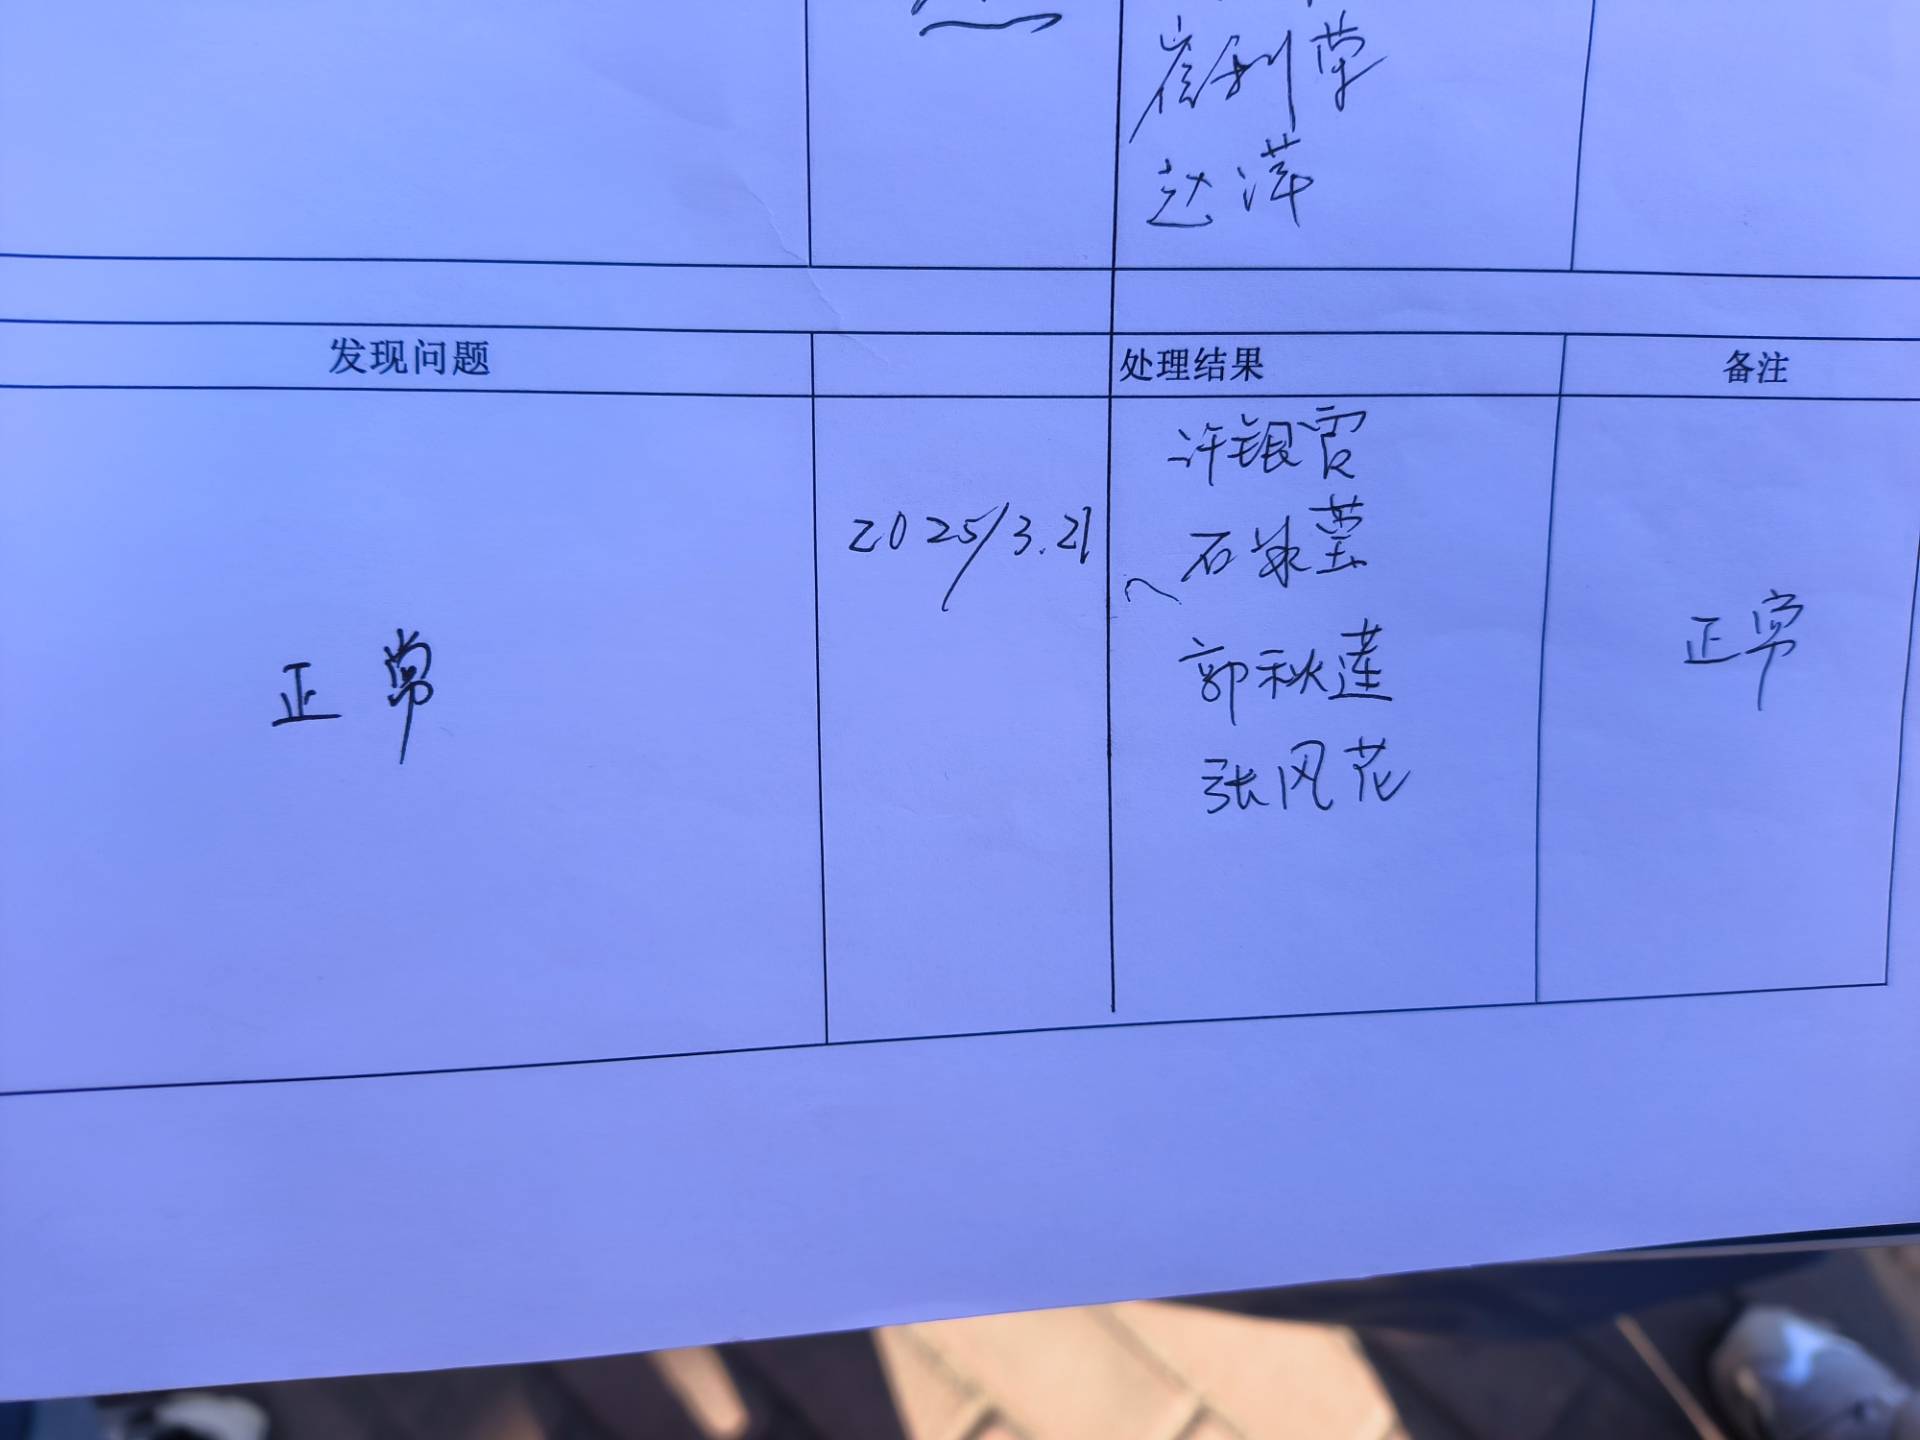 崔利草
赵萍
发现问题 处理结果 备注
许银霞
2025/3.21 石冰莹
正常 郭秋莲 正常
张风花